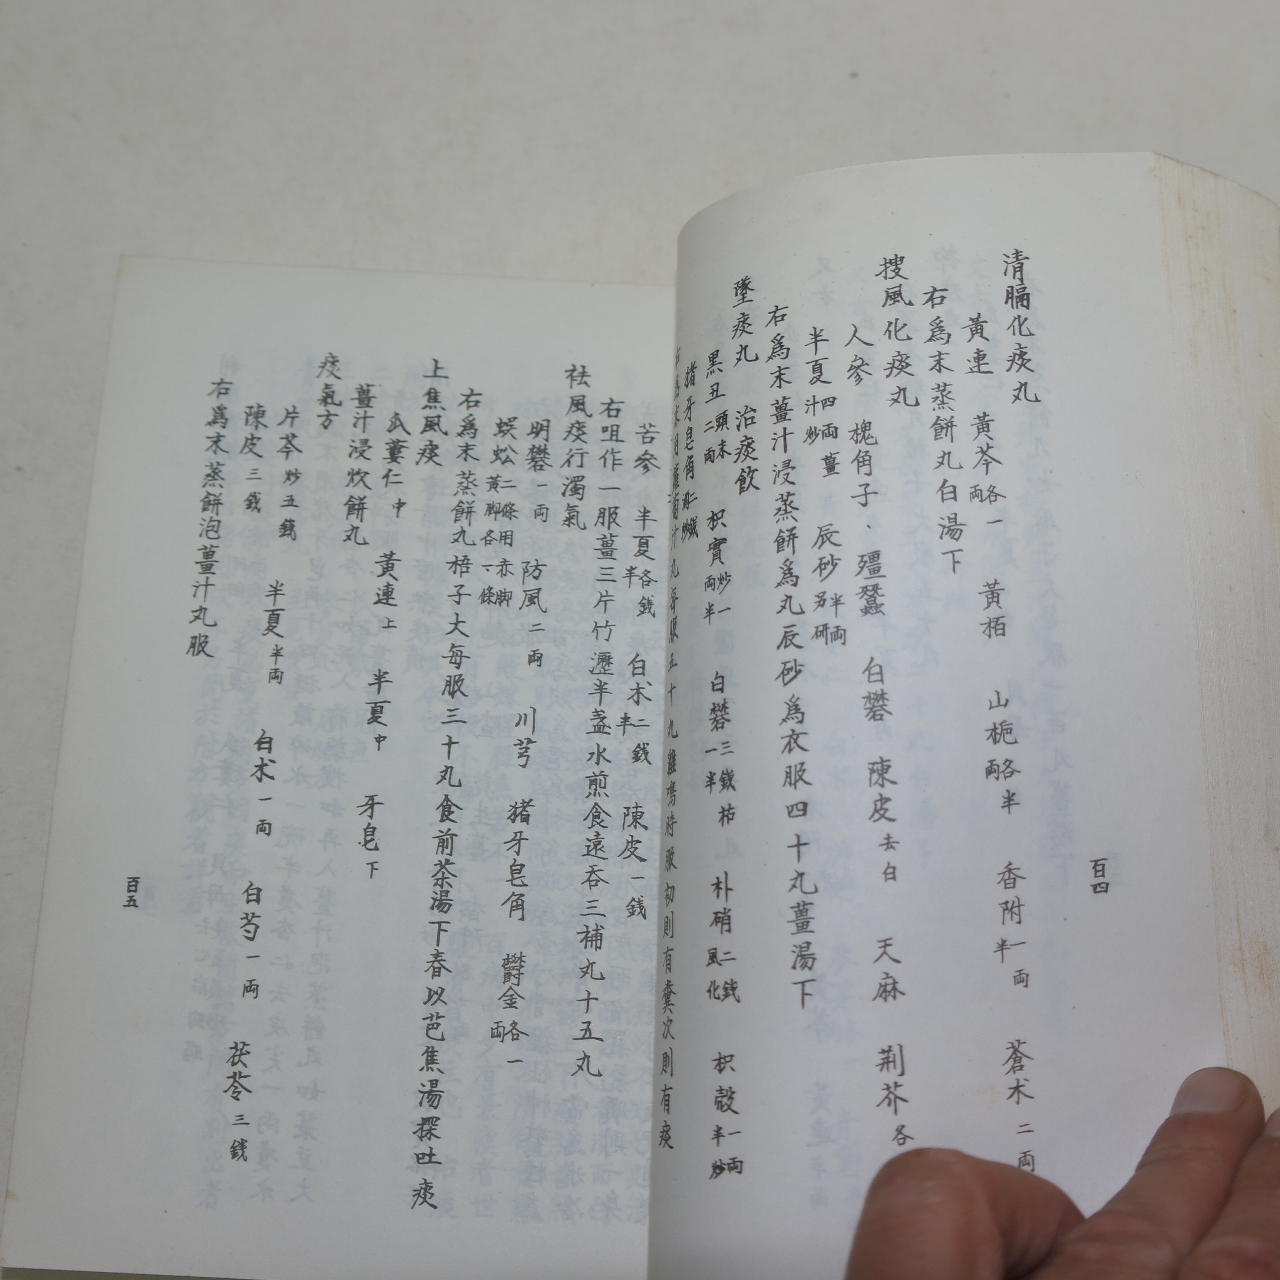 清膈化痰丸
黃連 黃芩各一兩 黃栢 山梔各半兩 香附一兩半 蒼术二兩
右爲末蒸餅丸白湯下
搜風化痰丸
人參 槐角子 殭蠶 白礬 陳皮去白 天麻 荆芥各
半夏四兩薑汁炒 辰砂半兩另研
右爲末薑汁浸蒸餅爲丸辰砂爲衣服四十丸薑湯下
墜痰丸 治痰飲
黑丑頭末二兩 枳實炒一兩半 白礬三錢枯一半 朴硝二錢風化 枳殼一兩半炒
猪牙皂角二錢炒
右爲末用蘿蔔汁丸每服五十丸雞鳴時服初則有糞次則有痰
百四
苦參 半夏各半錢 白术二錢半 陳皮一錢
右咀作一服薑三片竹瀝半盞水煎食遠吞三補丸十五丸
祛風痰行濁氣
明礬一兩 防風二兩 川芎 猪牙皂角 欝金各一兩
蜈蚣二條用赤脚黃脚各一條
右爲末蒸餅丸梧子大每服三十丸食前茶湯下春以芭焦湯探吐痰
上焦風痰
瓜蔞仁中 黃連上 半夏中 牙皂下
薑汁浸炊餅丸
痰氣方
片芩炒五錢 半夏半兩 白术一兩 白芍一兩 茯苓三錢
陳皮三錢
右爲末蒸餅泡薑汁丸服
百五